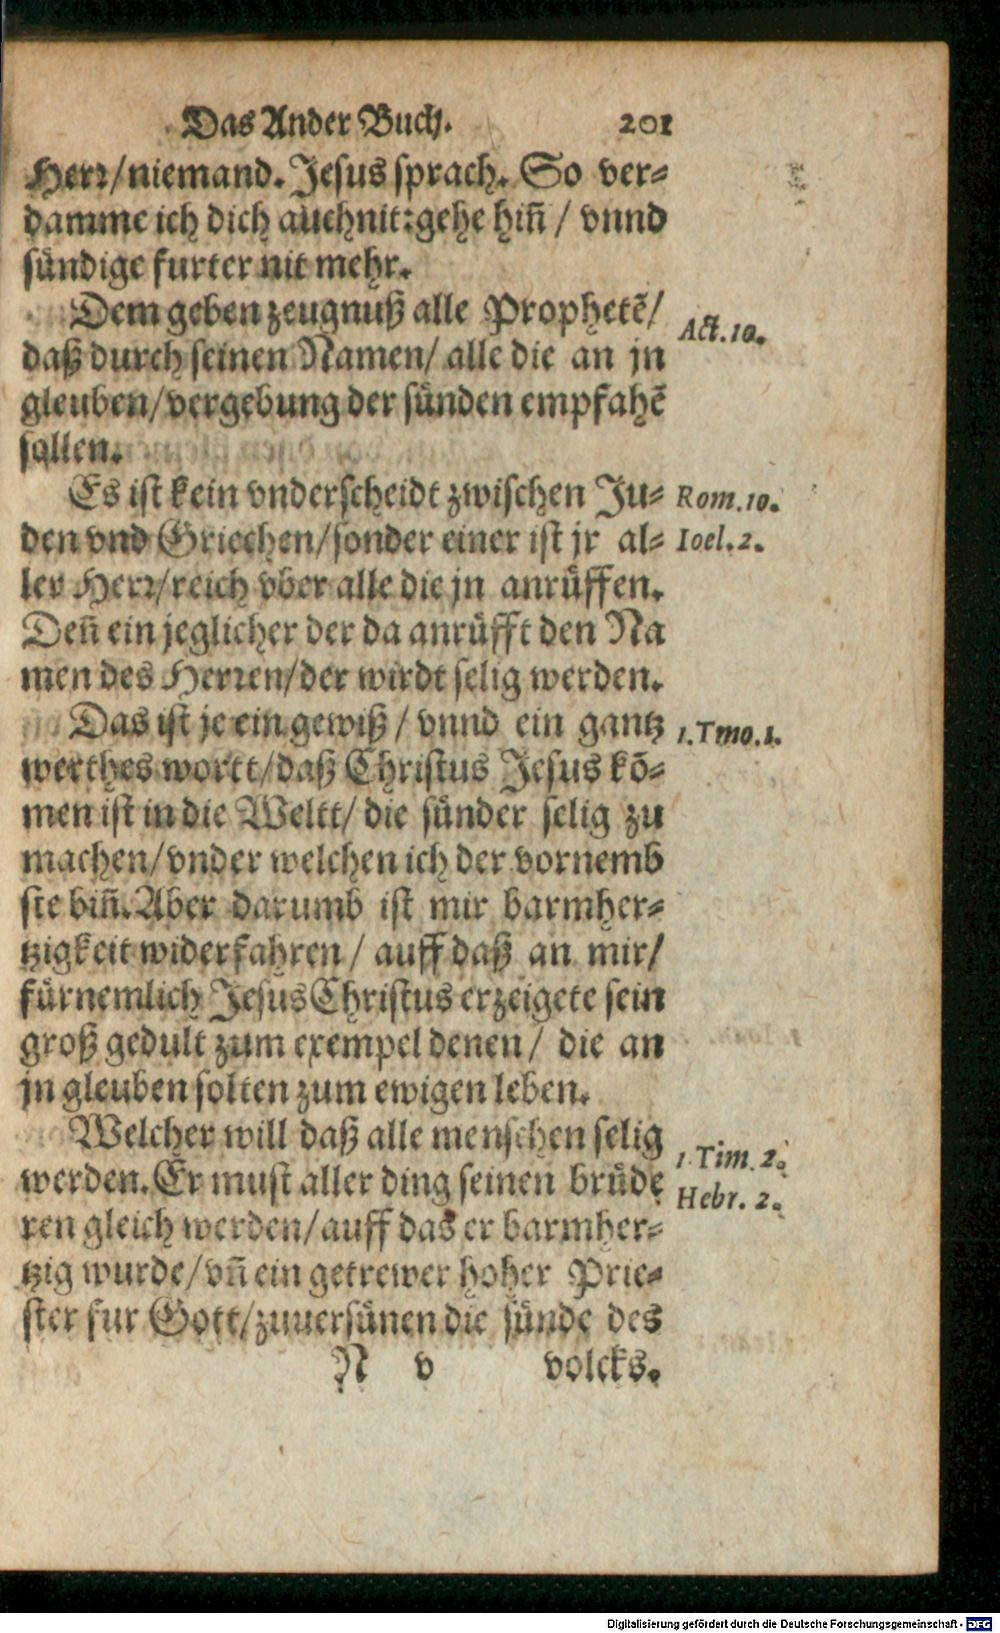 Das Ander Buch. 201
Herr/niemand. Jesus sprach. So ver-
damme ich dich auch nit: gehe hiñ / vnnd
sündige furter nit mehr.
Dem geben zeugnuß alle Prophetẽ/
Act. 10.
daß durch seinen Namen/ alle die an jn
gleuben/vergebung der sünden empfahẽ
sollen.
Es ist kein vnderscheidt zwischen Ju-
Rom. 10.
den vnd Griechen/sonder einer ist jr al-
Ioel. 2.
ler Herr/reich vber alle die jn anrüffen.
Deñ ein jeglicher der da anrüfft den Na
men des Herren/der wirdt selig werden.
Das ist je ein gewiß / vnnd ein gantz
1. Tmo. 1.
werthes wortt/daß Christus Jesus kõ-
men ist in die Weltt/ die sünder selig zu
machen/vnder welchen ich der vornemb
ste biñ. Aber darumb ist mir barmher-
tzigkeit widerfahren / auff daß an mir/
fürnemlich Jesus Christus erzeigete sein
groß gedult zum exempel denen/ die an
jn gleuben solten zum ewigen leben.
Welcher will daß alle menschen selig
1. Tim. 2.
werden. Er must aller ding seinen brüde
Hebr. 2.
ren gleich werden/auff das er barmher-
tzig wurde/vñ ein getrewer hoher Prie-
ster fur Gott/zuuersünen die sünde des
N v volcks.
Digitalisierung gefördert durch die Deutsche Forschungsgemeinschaft - DFG